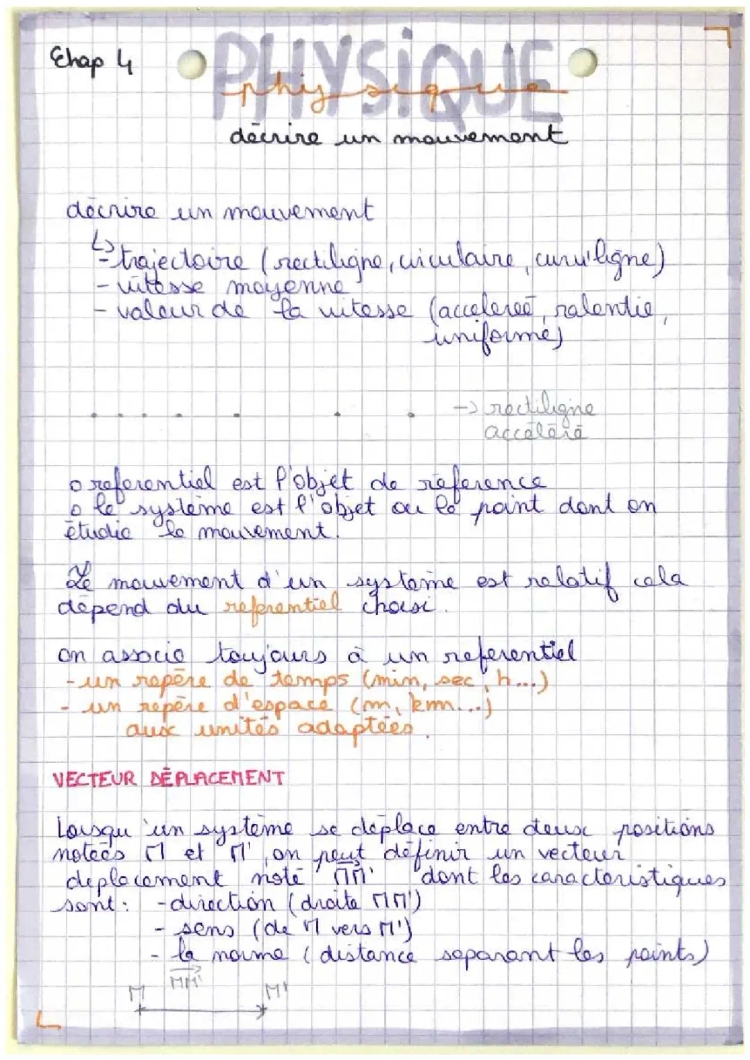 Chap 4
PHYSIQUE
physique
décrire un mouvement
décrire un mouvement
↳ - trajectoire (rectiligne, circulaire, curviligne)
- vitesse moyenne
- valeur de la vitesse (accélereé, ralentie,
uniforme)
-> rectiligne
accéléré
o referentiel est l'objet de réference
o le système est l'objet ou le point dont on
étudie le mouvement.
Le mouvement d'un système est relatif cela
dépend du referentiel choisi.
on associe toujours à un referentiel
- un repère de temps (min, sec, h...)
- un repère d'espace (m, km...)
aux unités adaptées.
VECTEUR DÉPLACEMENT
Lorsqu'un système se déplace entre deux positions
notées M et M', on peut définir un vecteur
deplacement noté MM' dont les caractéristiques
sont : - direction (droite MM')
- sens (de M vers M')
- la norme (distance separant les points)
MM'
M M'